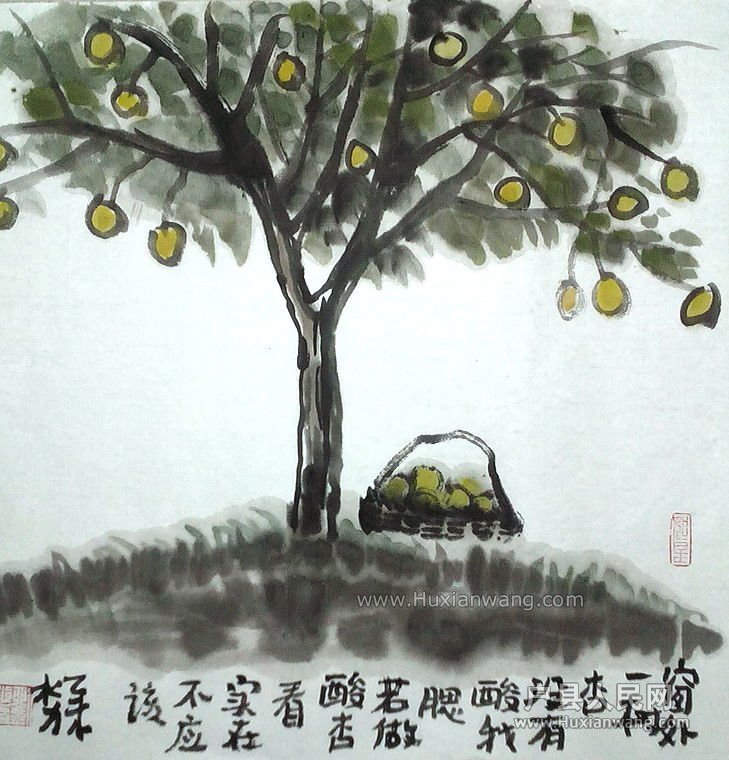 窗外
一
杏
没有
酸我
腮
若做
酸杏
看
实在
不应
該
www.Huxianwang.com
户县人民网
www.Huxianwang.com